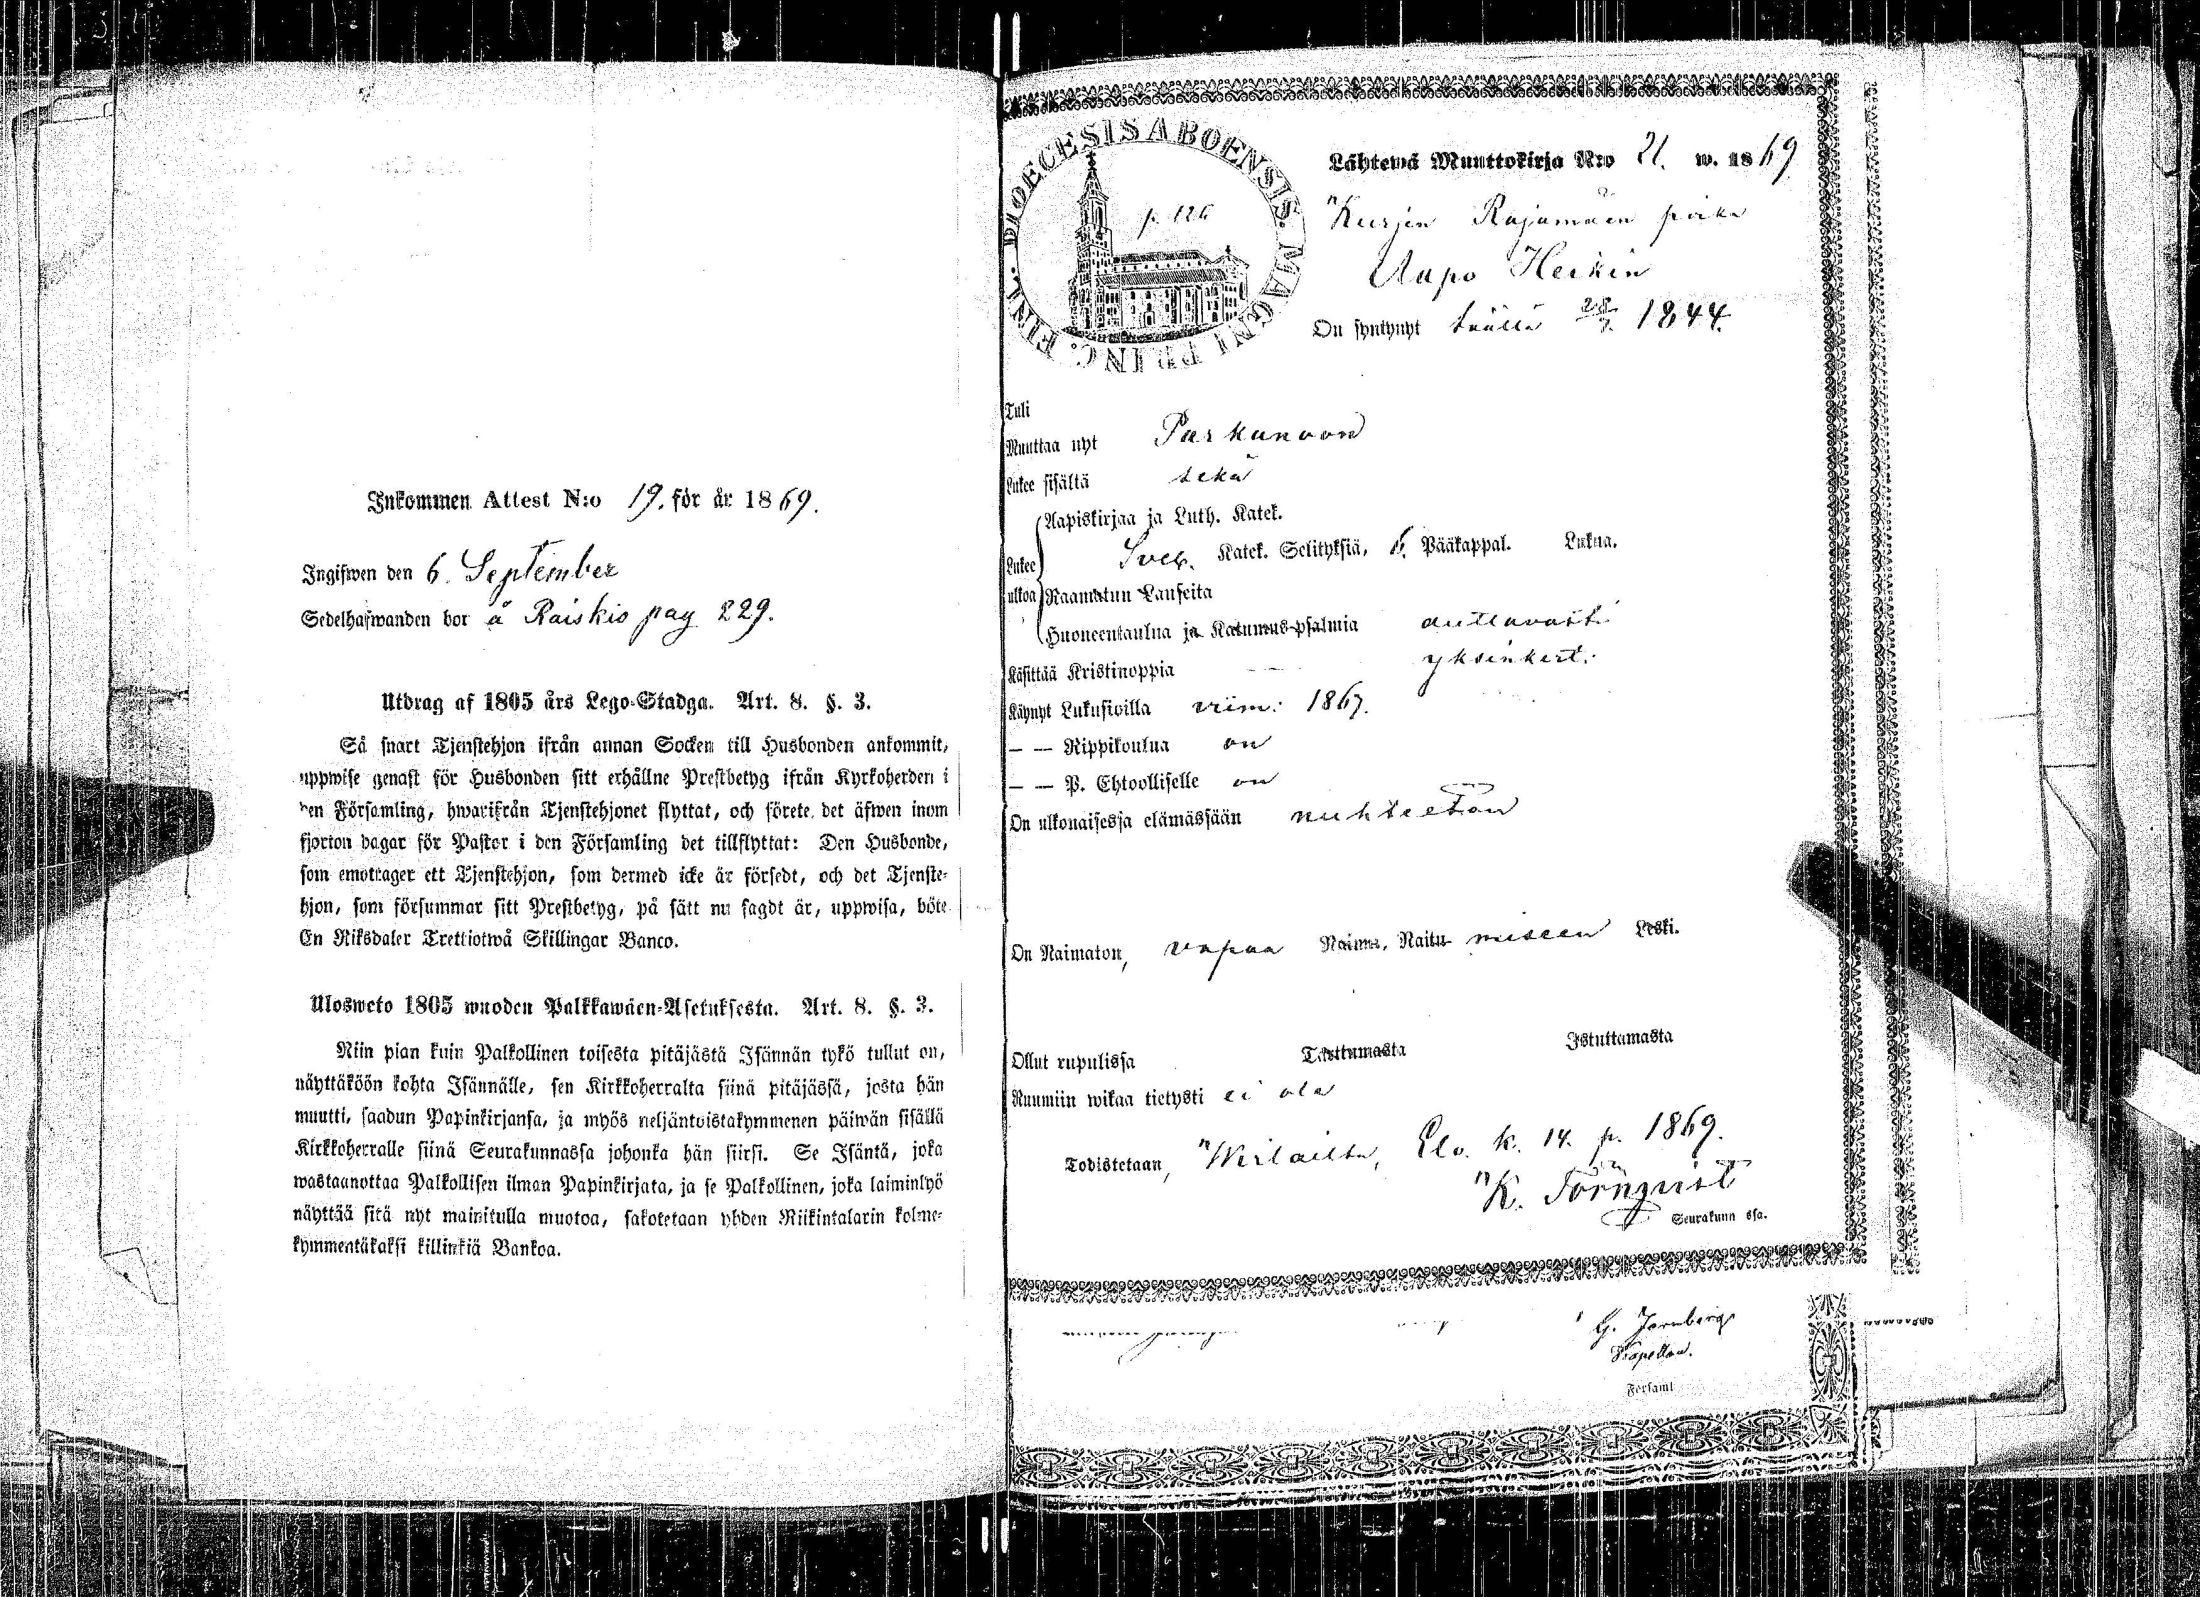 Inkommen Attest N:o 19. för år 1869.
Ingifwen den 6. September
Sedelhafwanden bor å Raiskio pag 229.
Utdrag af 1805 års Lego-Stadga. Art. 8. §. 3.
Så snart Tjenstehjon ifrån annan Socken till Husbonden ankommit,
uppwise genast för Husbonden sitt erhållne Prestbetyg ifrån Kyrkoherden i
den Församling, hwarifrån Tjenstehjonet flyttat, och förete det äfwen inom
fjorton dagar för Pastor i den Församling det tillflyttat: Den Husbonde,
som emottager ett Tjenstehjon, som dermed icke är försedt, och det Tjenste-
hjon, som försummar sitt Prestbetyg, på sätt nu sagdt är, uppwisa, böte
En Riksdaler Trettiotwå Skillingar Banco.
Ulosweto 1805 wuoden Palkkawäen-Asetuksesta. Art. 8. §. 3.
Niin pian kuin Palkollinen toisesta pitäjästä Isännän tykö tullut on,
näyttäköön kohta Isännälle, sen Kirkkoherralta siinä pitäjässä, josta hän
muutti, saadun Papinkirjansa, ja myös neljäntoistakymmenen päiwän sisällä
Kirkkoherralle siinä Seurakunnassa johonka hän siirsi. Se Isäntä, joka
wastaanottaa Palkollisen ilman Papinkirjata, ja se Palkollinen, joka laiminlyö
näyttää sitä nyt mainitulla muotoa, sakotetaan yhden Riikintalarin kolme-
kymmentäkaksi killinkiä Bankoa.
DIOECESIS ABOENSIS. MAGNI PRINC. FINL.
p. 126
Lähtewä Muuttokirja N:o 21. w. 1869
Kurjen Rajamäen poika
Aapo Heikin
On syntynyt täällä 28/7. 1844.
Tuli
Muuttaa nyt Parkanoon
Lukee sisältä sekä
Aapiskirjaa ja Luth. Katek.
Sveb. Katek. Selityksiä, 6. Pääkappal. Lukua.
Lukee
ulkoa Raamatun Lauseita
Huoneentaulua ja Katumus-psalmia auttavasti
Käsittää Kristinoppia yksinkert.
Käynyt Lukusioilla viim: 1867.
— — Rippikoulua on
— — P. Ehtoolliselle on
On ulkonaisessa elämässään nuhteeton
On Naimaton, vapaa Nainut, Naitu- miseen Leski.
Ollut rupulissa Tarttumasta Istuttamasta
Ruumiin wikaa tietysti ei ole
Todistetaan, Elo. k. 14. p. 1869.
K. Törnqvist
Seurakunn ssa.
G. Jernberg
Kapellan.
Församl